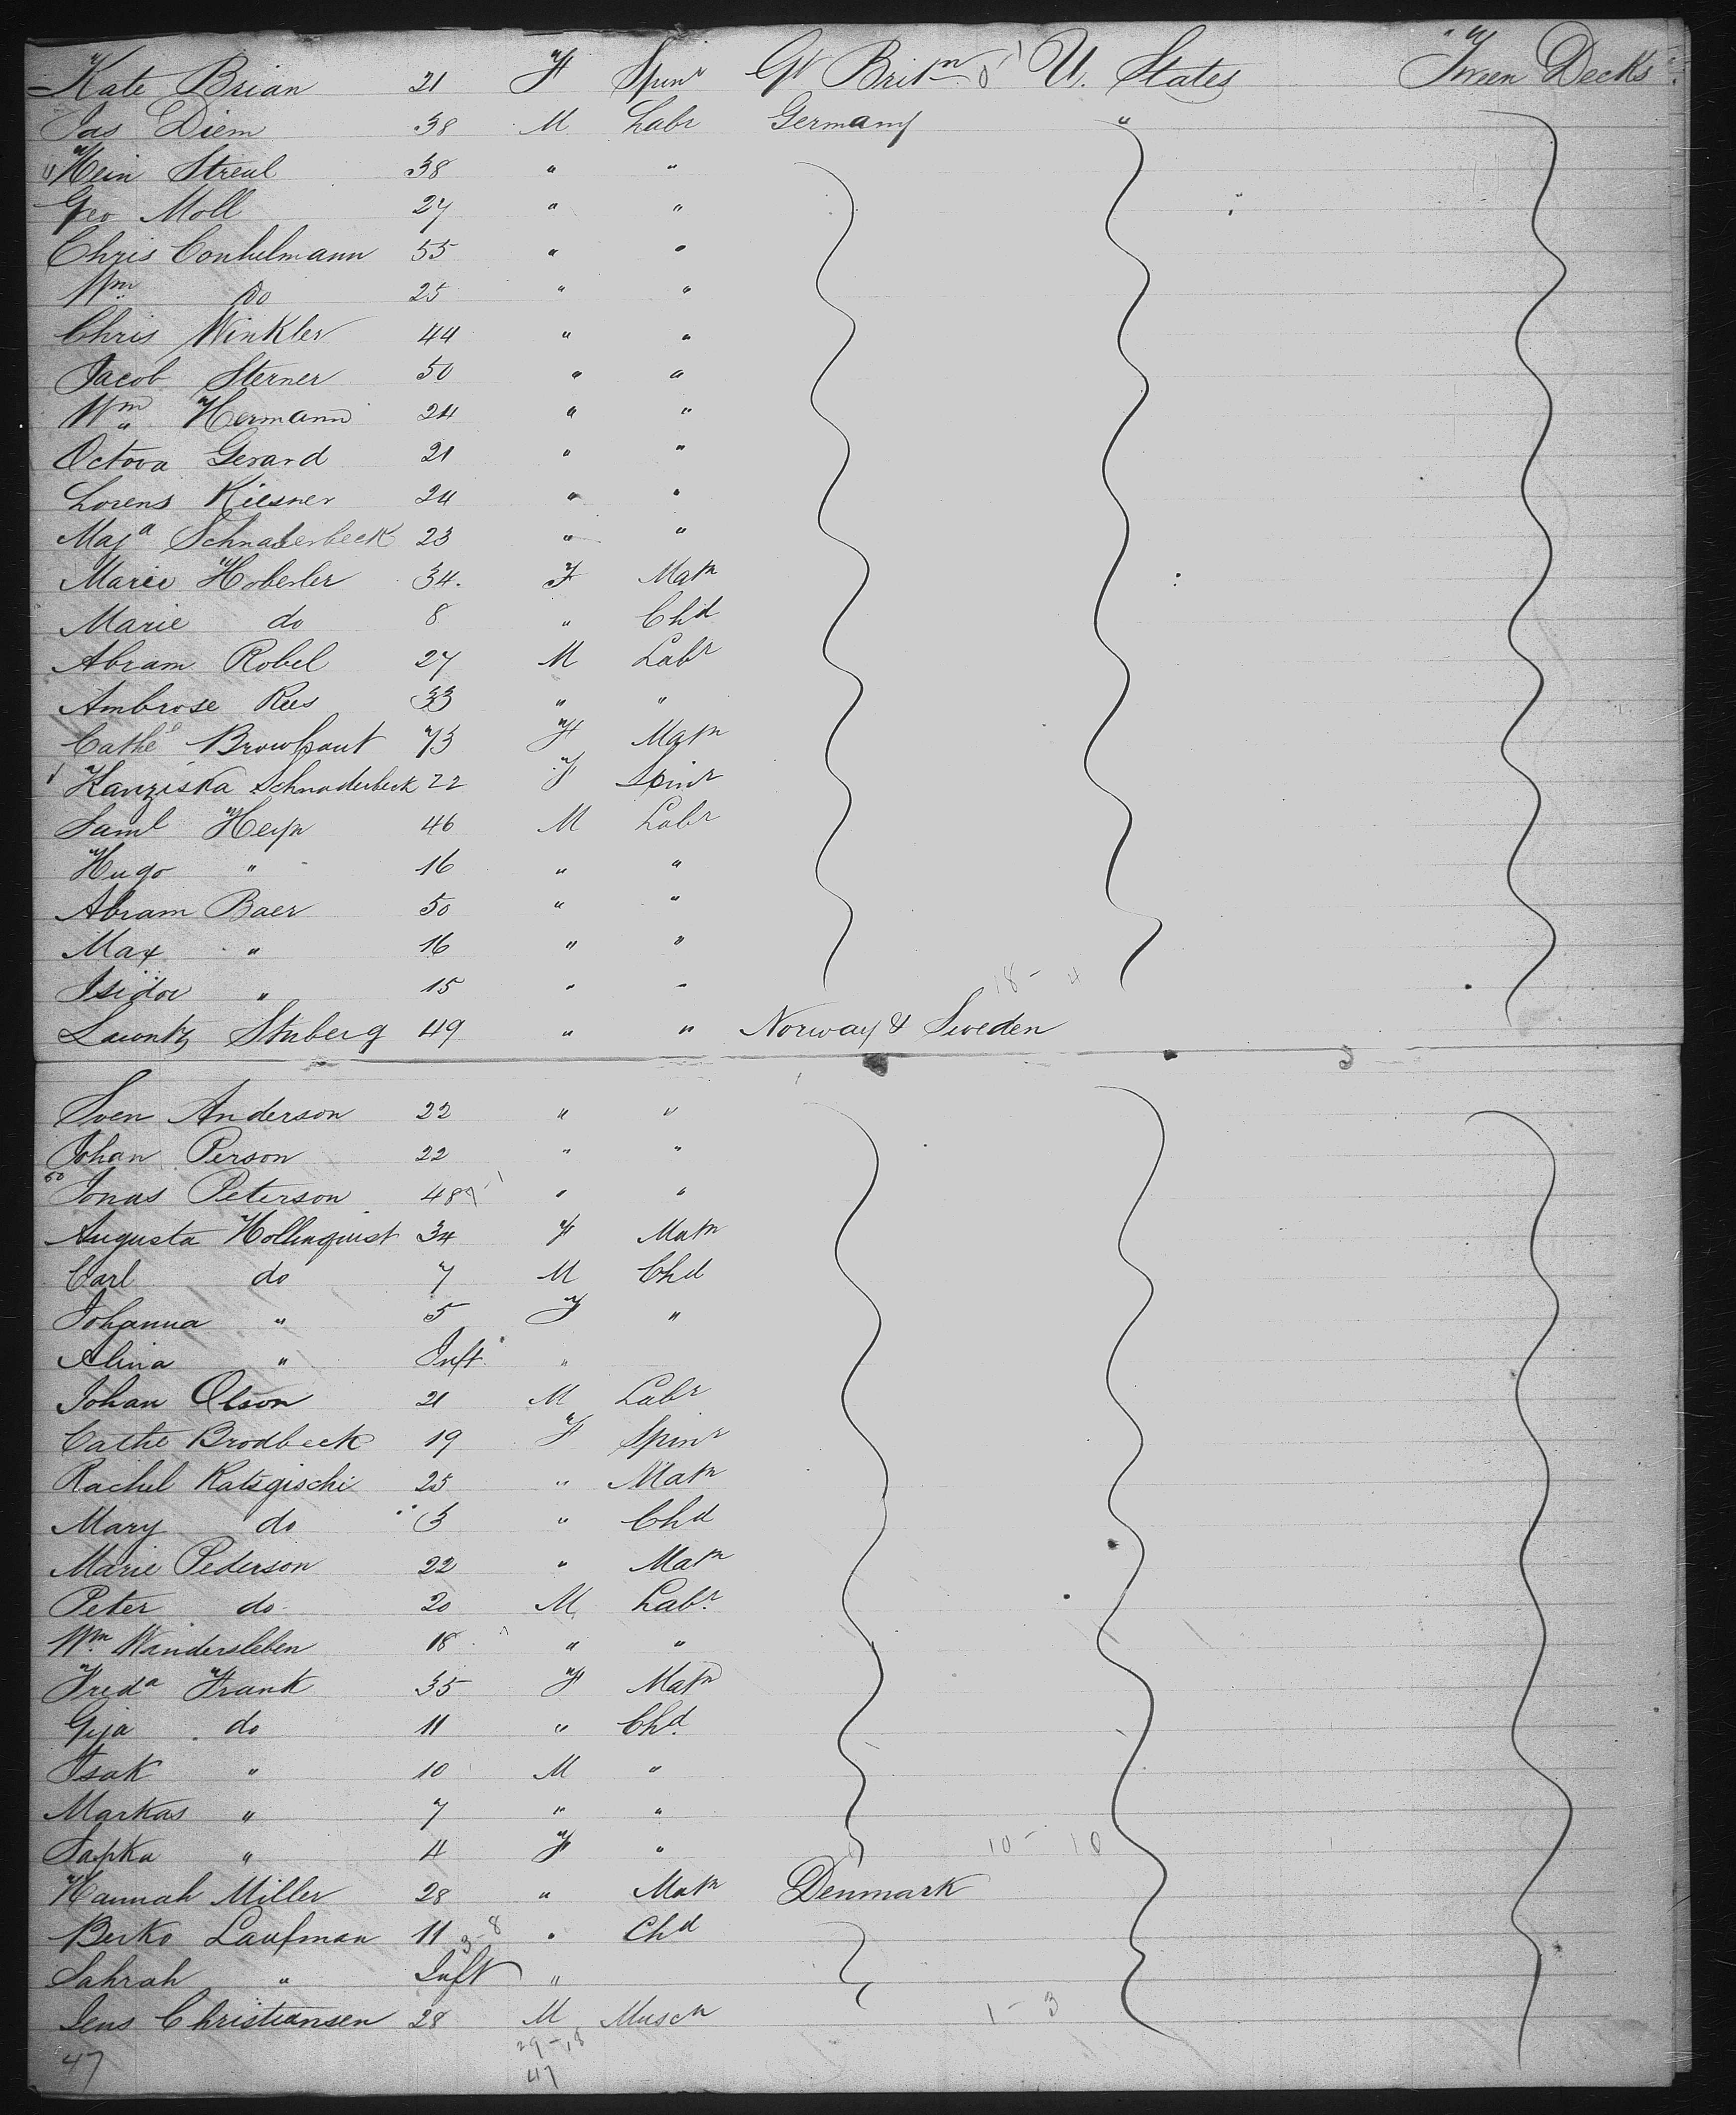 Kate Brian 21 F Spinr Gt Britn 0 1 U. States Tween Decks
Jas Diem 38 M Labr Germany "
Hein Streul 38 " "
Geo Moll 27 " "
Chris Conhelmann 55 " "
Wm do 25 " "
Chris Winkler 44 " "
Jacob Sterner 50 " "
Wm Hermann 24 " "
Octova Gerard 21 " "
Lorens Kiesner 24 " "
Maja Schnaderbeck 23 " "
Marie Hoberler 34. F Matn
Marie do 8 " Chd
Abram Robel 27 M Labr
Ambrose Rees 33 " "
Cathe 73 F Matn
Kanziska Schnaderbeck 22 F Spinr
Saml Heyn 46 M Labr
Hugo " 16 " "
Abram Baer 50 " "
Max " 16 " "
Isidor " 15 " "
18 - 4
Stuberg 49 " " Norway & Sweden
Sven Anderson 22 " "
Johan Person 22 " "
Jonas Peterson 48 " "
Augusta Hollinquist 34 F Matn
Carl do 7 M Chd
Johanna " 5 F "
Alina " Inft "
Johan Olson 21 M Labr
Cathe Brodbeck 19 F Spinr
Rachel Katsgischi 25 " Matn
Mary do 3 " Chd
Marie Pederson 22 " Matn
Peter do 20 M Labr
Wm Windersleben 18 " "
Freda Frank 35 F Matn
Gija do 11 " Chd
Isak " 10 M "
Markas " 7 " "
Sapka " 4 F " 10 - 10
Hannah Miller 28 " Matn Denmark
Berko Laufman 11 " Chd
Sahrah " Inft "
Jens Christiansen 28 M Muscn 1 - 3
29 - 18
47 47